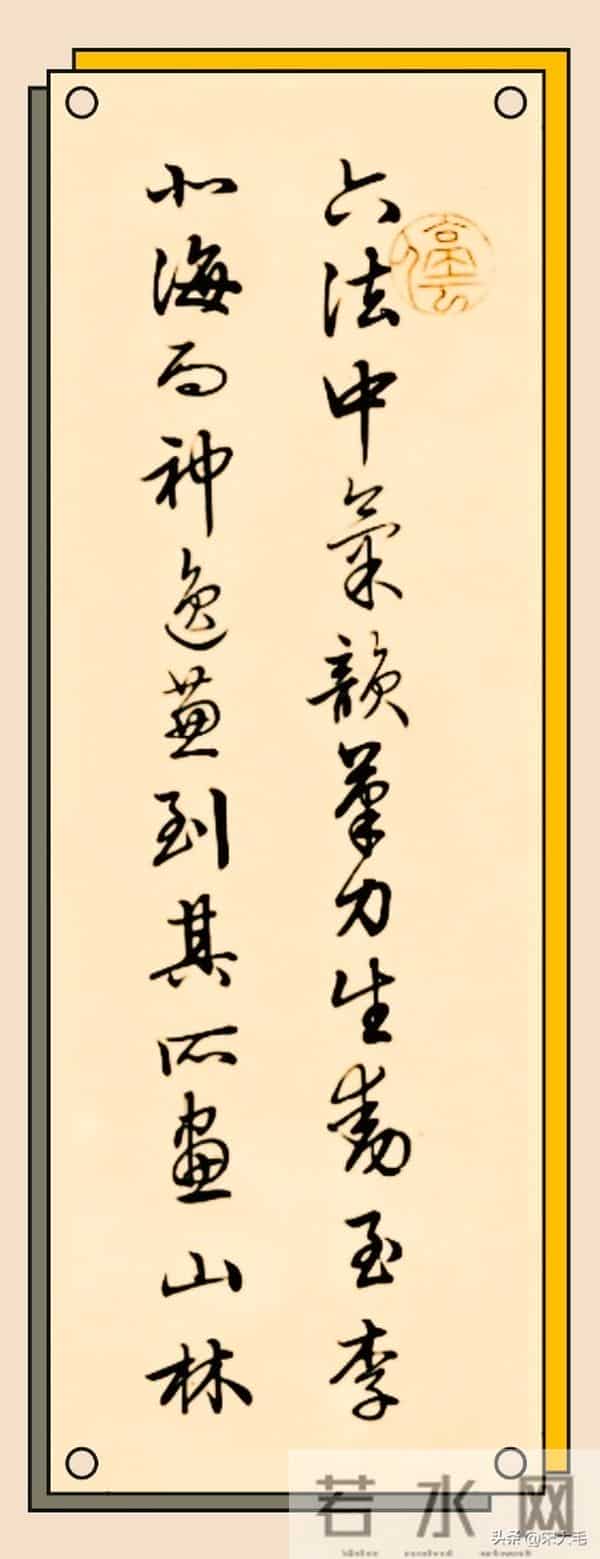 六法中氣韻筆力生動至李
北海而神逸兼到其所畫山林
停雲
若水网
头条@宋大毛